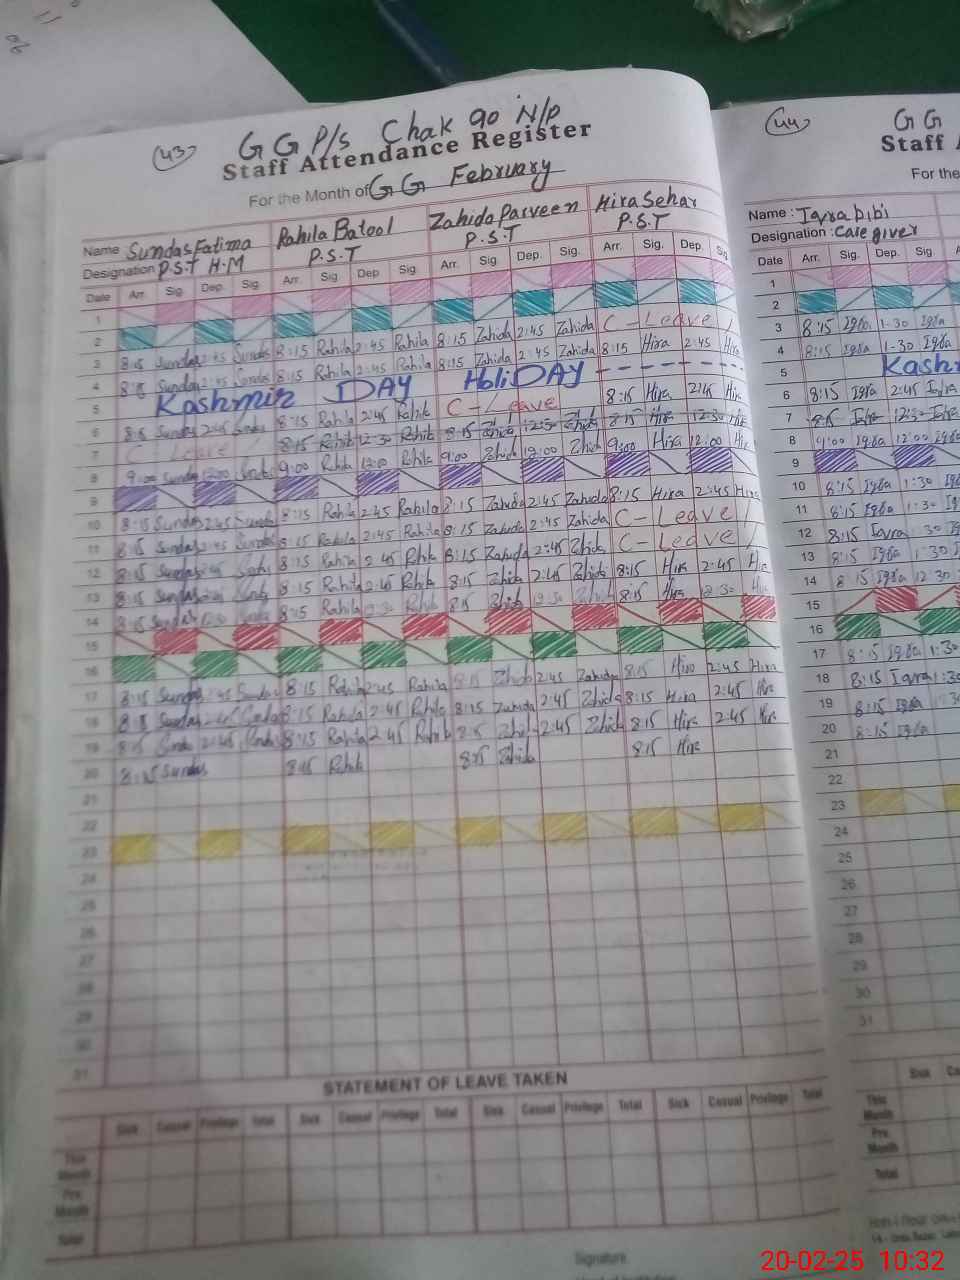 43
G G P/s Chak 90 N/p
Staff Attendance Register
For the Month of G G February
Name Sundas Fatima Rahila Batool Zahida Parveen Hira Sehar
Designation P.S.T H.M P.S.T P.S.T P.S.T
Date Arr. Sig. Dep. Sig. Arr. Sig. Dep. Sig. Arr. Sig. Dep. Sig. Arr. Sig. Dep. Sig.
1
2
3 8:15 Sundas 2:45 Sundas 8:15 Rahila 2:45 Rahila 8:15 Zahida 2:45 Zahida C - Leave
4 8:15 Sundas 2:45 Sundas 8:15 Rahila 2:45 Rahila 8:15 Zahida 2:45 Zahida 8:15 Hira 2:45 Hira
5 Kashmir DAY HoliDAY
6 8:15 Sundas 2:45 Sundas 8:15 Rahila 2:45 Rahila C - Leave 8:15 Hira 2:45 Hira
7 C Leave 8:15 Rahila 12:30 Rahila 8:15 Zahida 12:30 Zahida 8:15 Hira 12:30 Hira
8 9:00 Sundas 12:00 Sundas 9:00 Rahila 12:00 Rahila 9:00 Zahida 12:00 Zahida 9:00 Hira 12:00 Hira
9
10 8:15 Sundas 2:45 Sundas 8:15 Rahila 2:45 Rahila 8:15 Zahida 2:45 Zahida 8:15 Hira 2:45 Hira
11 8:15 Sundas 2:45 Sundas 8:15 Rahila 2:45 Rahila 8:15 Zahida 2:45 Zahida C - Leave
12 8:15 Sundas 2:45 Sundas 8:15 Rahila 2:45 Rahila 8:15 Zahida 2:45 Zahida C - Leave
13 8:15 Sundas 2:45 Sundas 8:15 Rahila 2:45 Rahila 8:15 Zahida 2:45 Zahida 8:15 Hira 2:45 Hira
14 8:15 Sundas 12:30 Sundas 8:15 Rahila 12:30 Rahila 8:15 Zahida 12:30 Zahida 8:15 Hira 12:30 Hira
15
16
17 8:15 Sundas 2:45 Sundas 8:15 Rahila 2:45 Rahila 8:15 Zahida 2:45 Zahida 8:15 Hira 2:45 Hira
18 8:15 Sundas 2:45 Sundas 8:15 Rahila 2:45 Rahila 8:15 Zahida 2:45 Zahida 8:15 Hira 2:45 Hira
19 8:15 Sundas 2:45 Sundas 8:15 Rahila 2:45 Rahila 8:15 Zahida 2:45 Zahida 8:15 Hira 2:45 Hira
20 8:15 Sundas 8:15 Rahila 8:15 Zahida 8:15 Hira
21
22
23
24
25
26
27
28
29
30
31
STATEMENT OF LEAVE TAKEN
Sick Casual Privilege Total Sick Casual Privilege Total Sick Casual Privilege Total Sick Casual Privilege Total
This Month
Pre Month
Total
Signature
44
G G
Staff
For the
Name : Iqra bibi
Designation : Care giver
Date Arr. Sig. Dep. Sig.
1
2
3 8:15 Iqra 1-30 Iqra
4 8:15 Iqra 1-30 Iqra
5 Kashm
6 8:15 Iqra 2:45 Iqra
7 8:15 Iqra 12:30 Iqra
8 9:00 Iqra 12:00 Iqra
9
10 8:15 Iqra 1:30
11 8:15 Iqra 1:30
12 8:15 Iqra 1:30
13 8:15 Iqra 1:30
14 8:15 Iqra 12:30
15
16
17 8:15 Iqra 1:30
18 8:15 Iqra 1:30
19 8:15 Iqra
20 8:15 Iqra
21
22
23
24
25
26
27
28
29
30
31
Sick
This Month
Pre Month
Total
20-02-25 10:32